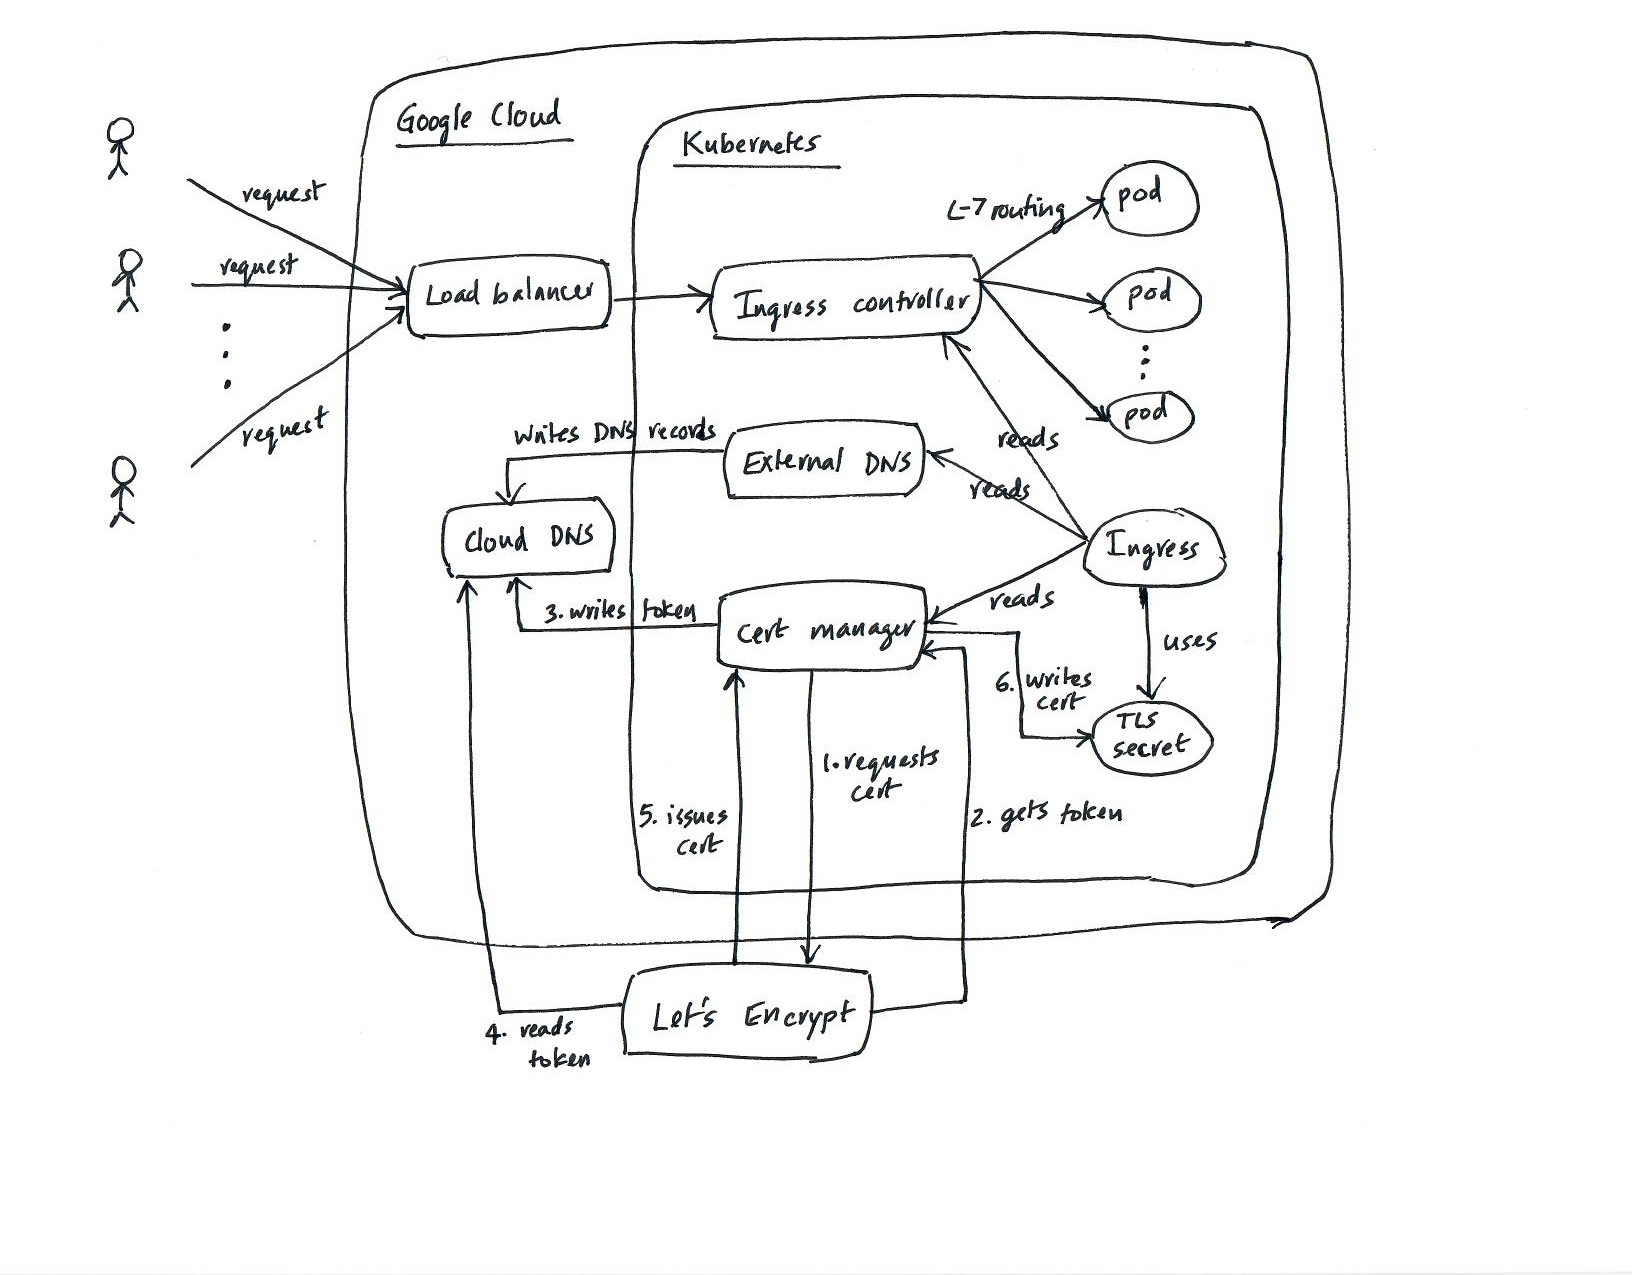 Google Cloud
Kubernetes
request
request
request
Load balancer
Ingress controller
L-7 routing
pod
pod
pod
reads
reads
reads
Writes DNS records
External DNS
Cloud DNS
Ingress
3. writes token
cert manager
uses
6. writes
cert
TLS
secret
1. requests
cert
5. issues
cert
2. gets token
Let's Encrypt
4. reads
token